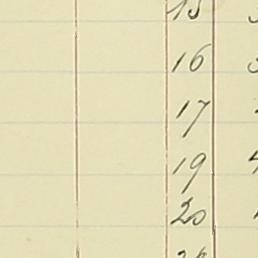 15
16
17
19
20